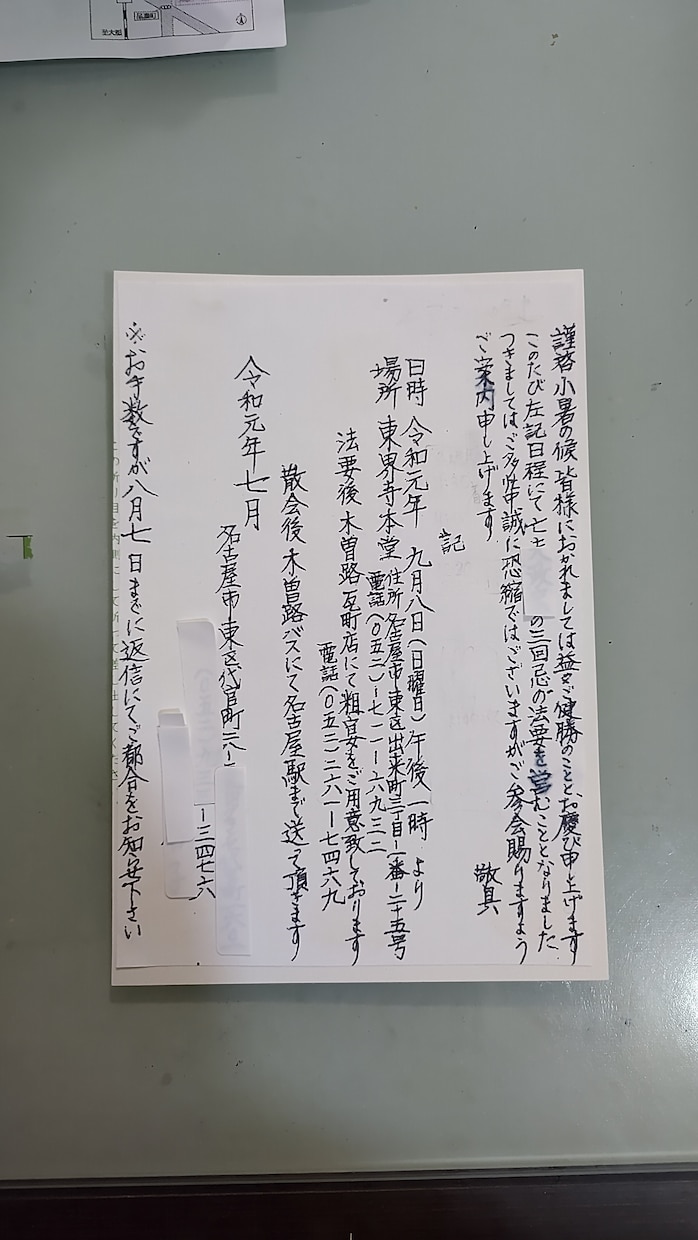 謹啓 小暑の候 皆様におかれましては益々ご健勝のこととお慶び申し上げます
このたび左記日程にて亡
の三回忌の法要を営むこととなりました
つきましてはご多忙中誠に恐縮ではございますがご参会賜りますよう
ご案内申し上げます
敬具
記
日時 令和元年 九月八日(日曜日)午後一時 より
場所 東界寺本堂 住所 名古屋市東区出来町三丁目一番二十五号
電話(〇五二)七二一-六九三二
法要後 木曽路 瓦町店にて粗宴をご用意致しております
電話(〇五二)二六一-七四六九
散会後 木曽路バスにて名古屋駅まで送って頂きます
令和元年七月
名古屋市東区代官町
-三四七六
※お手数ですが八月七日までに返信にてご都合をお知らせ下さい
この折り目を内側に
至大垣